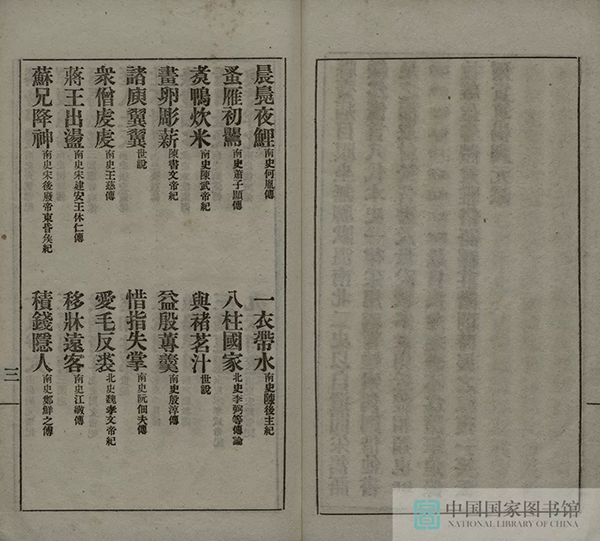 晨鳧夜鯉南史何胤傳
一衣帶水南史陳後主紀
蚤雁初鶯南史蕭子顯傳
八柱國家北史李弼等傳論
煑鴨炊米南史陳武帝紀
與褚茗汁世説
畫卵彫薪陳書文帝紀
益殷蓴羹南史殷淳傳
諸庾翼翼世説
惜指失掌南史阮佃夫傳
衆僧虔虔南史王慈傳
愛毛反裘北史魏孝文帝紀
蔣王出盪南史宋建安王休仁傳
移牀遠客南史江斆傳
蘇兄降神南史宋後廢帝東昏侯紀
積錢隱人南史鄭鮮之傳
三
中国国家图书馆
NATIONAL LIBRARY OF CHINA